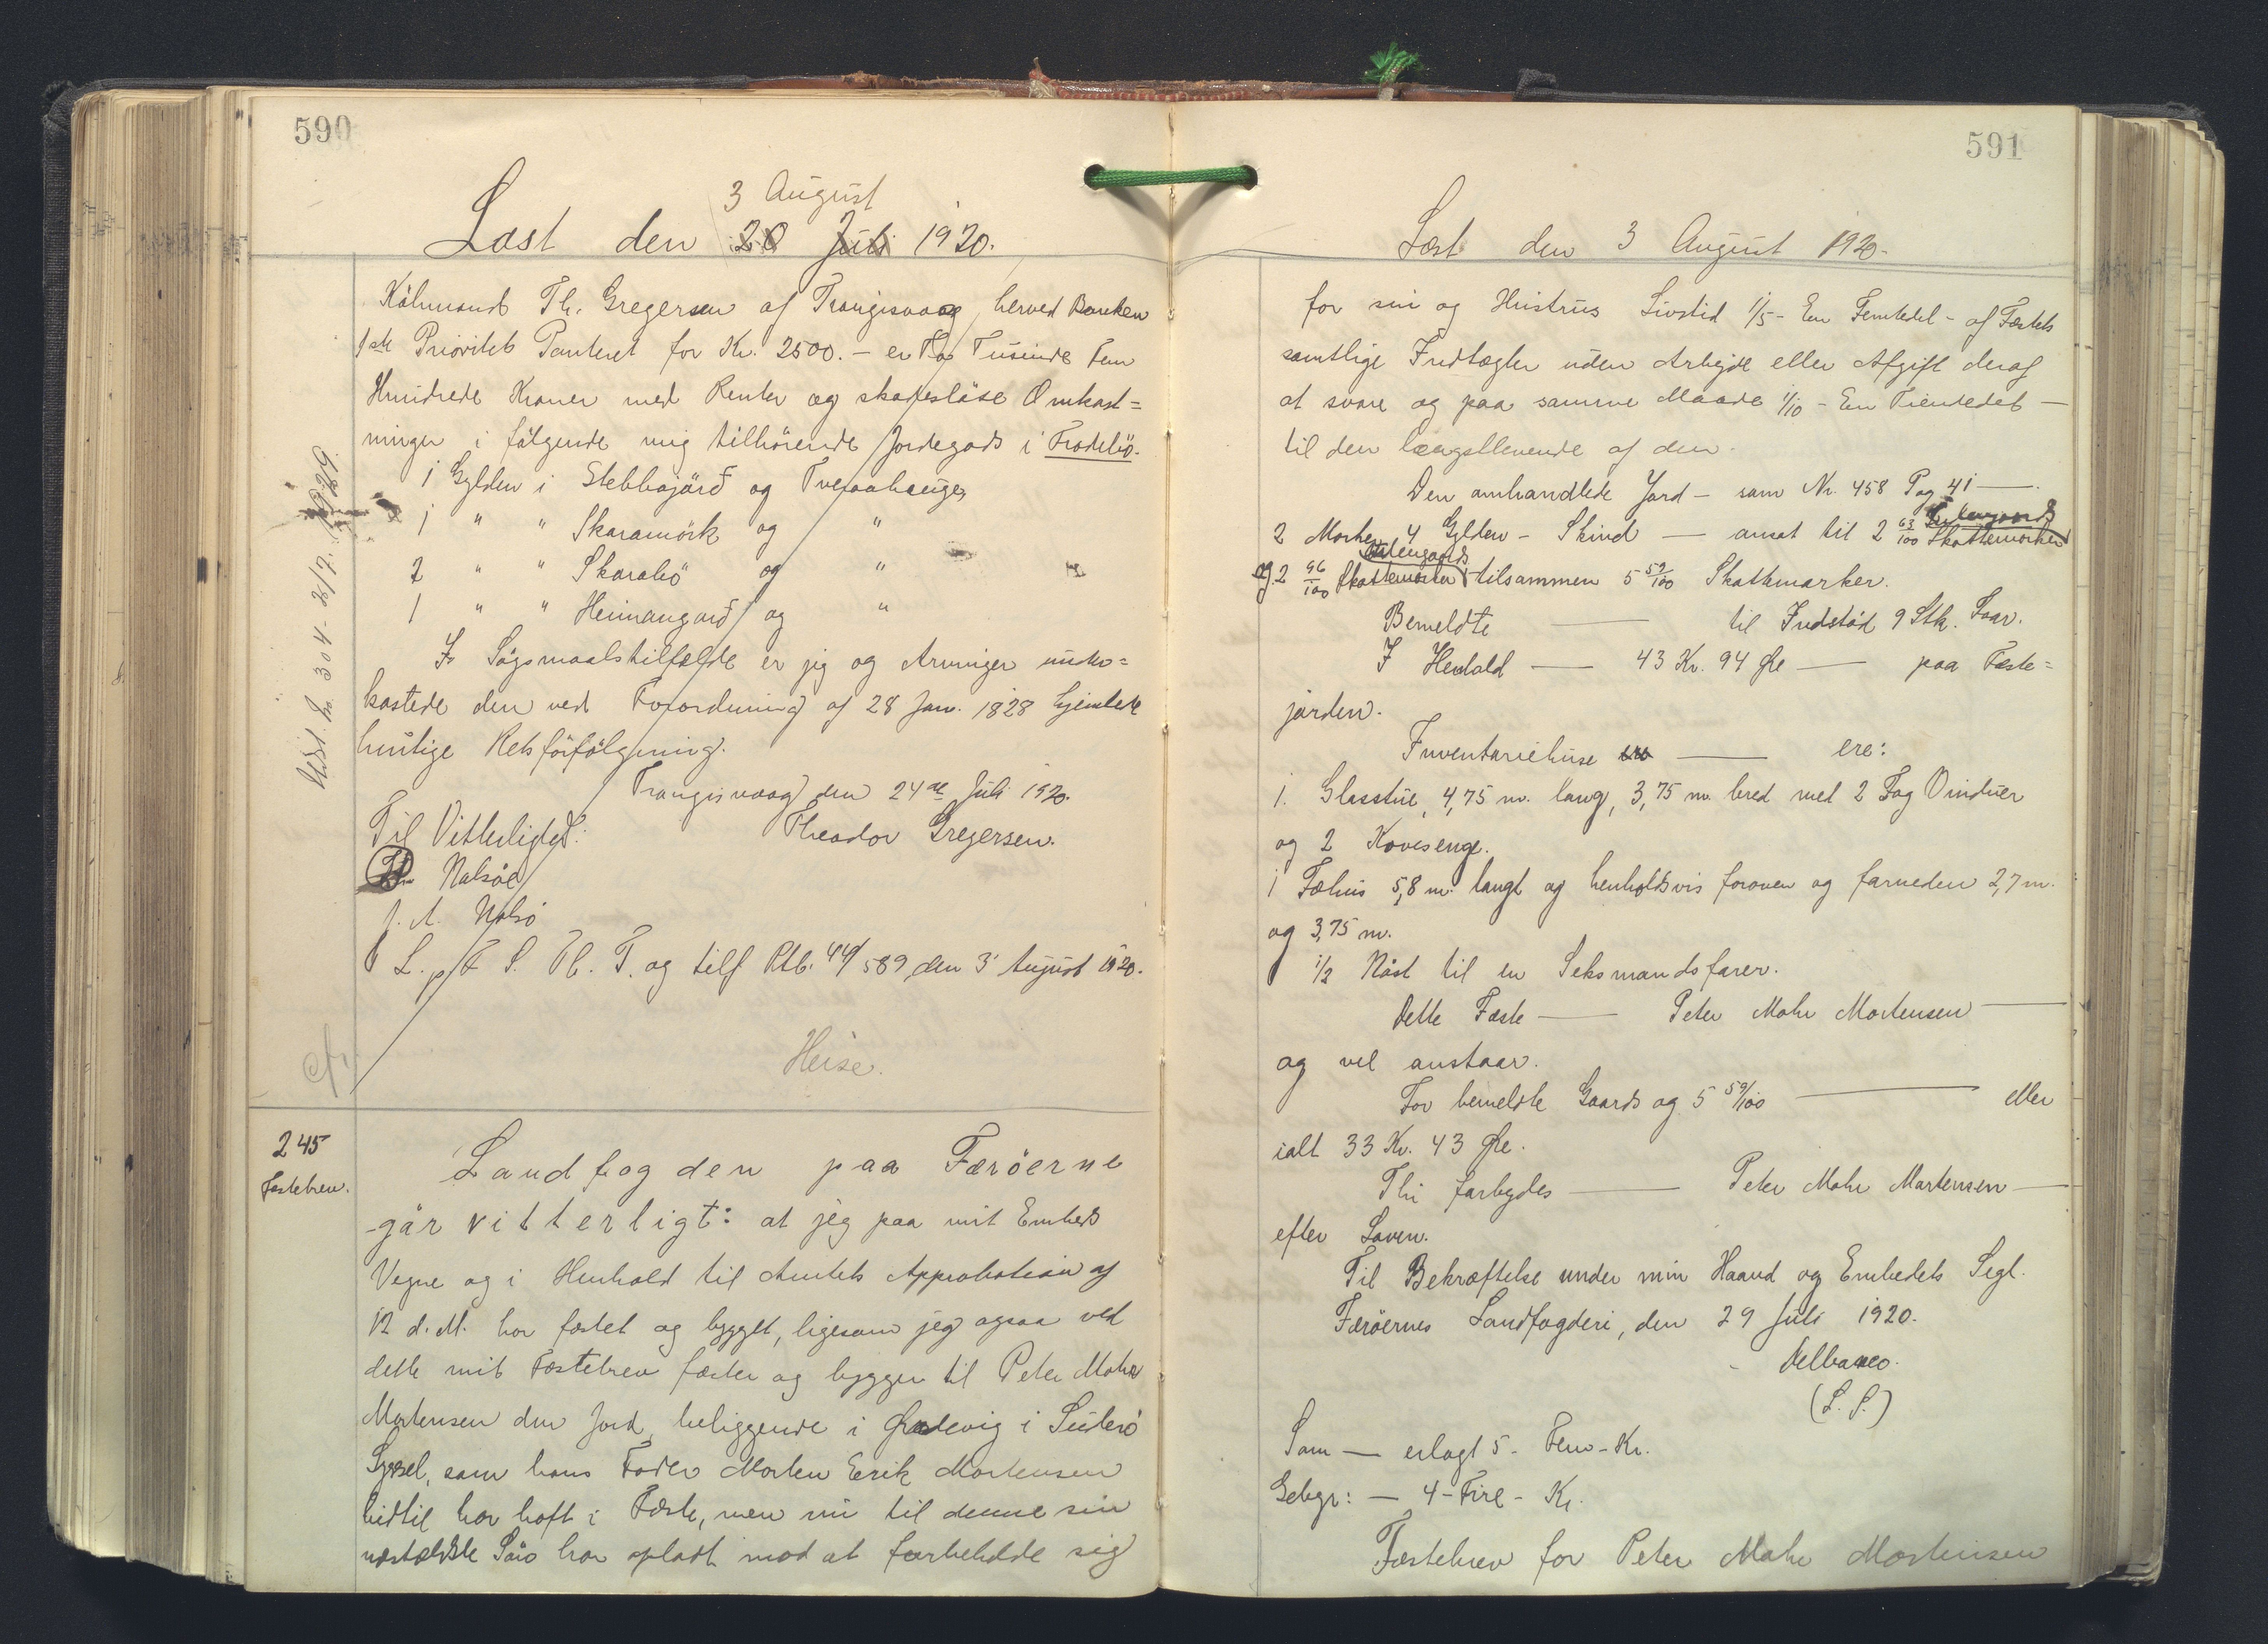 590
3 August
Læst den 20 Juli 1920.
Købmand Th. Gregersen af Trangisvaag herved Banken
1ste Prioritets Panteret for Kr. 2500. – er To Tusinde Fem
Hundrede Kroner med Renter og skadesløse Omkost=
ninger i følgende mig tilhørende Jordegods i Frodebø.
1 Gylden i Stebbajørd og Tveraahauge,
1 " " Skaramørk og "
2 " " Skarabø og "
1 " " Heimangard og "
I Søgsmaalstilfælde er jeg og Arvinger under=
kastede den ved Forordning af 28 Jan. 1828 hjemlede
hurtige Retsforfølgning.
Trangisvaag den 24de Juli 1920.
Til Vitterlighed: Theodor Gregersen.
Nolsøe
J. A. Nolsø
L. p. F. S. Th. T. og tilf Rtb. 44/589 den 3 August 1920.
Heise.
Udsl. No. 304 - 2/7. 1929.
cfr
245
Fæstebrev.
Landfogden paa Færøerne
gør vitterligt: at jeg paa mit Embeds
Vegne og i Henhold til Amtets Approbation af
12 d. M. har fæstet og bygget, ligesom jeg ogsaa ved
dette mit Fæstebrev fæster og bygger til Peter Mohr
Mortensen den Jord, beliggende i Ørdevig i Suderø
Syssel, som hans Fader Morten Erik Mortensen
hidtil har haft i Fæste, men nu til denne sin
næstældste Søn har opladt mod at forbeholde sig
591
Læst den 3 August 1920.
for sin og Hustrus Livstid 1/5 - En Femtedel - af Fæstets
samtlige Indtægter uden Arbejde eller Afgift deraf
at svare og paa samme Maade 1/10 - En Tiendedel –
til den længstlevende af dem.
Den omhandlede Jord – som Nr. 458 Pag 41 –
2 Marker 4 Gylden - Skind – ansat til 2 63/100 Skattemarker
Udengaards
og 2 96/100 Skattemarker tilsammen 5 59/100 Skattemarker.
Bemeldte – til Indstød 9 Stk. Faar.
I Henhold – 43 Kr. 94 Øre – paa Fæste=
jorden.
Inventariehuse – ere:
1. Glasstue 4,75 m. lang, 3,75 m. bred med 2 Fag Vinduer
og 2 Kovesenge.
1 Fæhus 5,8 m. langt og henholdsvis foroven og forneden 2,7 m.
og 3,75 m.
1/2 Nøst til en Seksmandsfarer.
Dette Fæste – Peter Mohr Mortensen –
og vel anstaar.
For bemeldte Gaards og 5 59/100 – eller
ialt 33 Kr. 43 Øre.
Thi forbydes – Peter Mohr Mortensen –
efter Loven.
Til Bekræftelse under min Haand og Embedets Segl.
Færøernes Landfogderi, den 29 Juli 1920.
Delbanco.
(L. S.)
Som – erlagt 5 - Fem - Kr.
Gebyr: – 4 - Fire - Kr.
Fæstebrev for Peter Mohr Mortensen